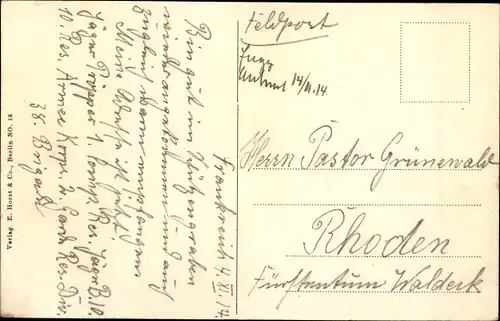 Frankreich 4.XI.14.
Bin gut im Schützengraben
wieder angekommen und auf
England
Meine Adresse ist jetzt
Jäger 1. Res. Jäger B. 10.
10. Res. Armee Korps, 2. Garde Res. Div.
38. Brigade
Verlag E. Horst & Co., Berlin NO. 18
Feldpost
14/11.14
Herrn Pastor Grünewald
Rhoden
Fürstentum Waldeck